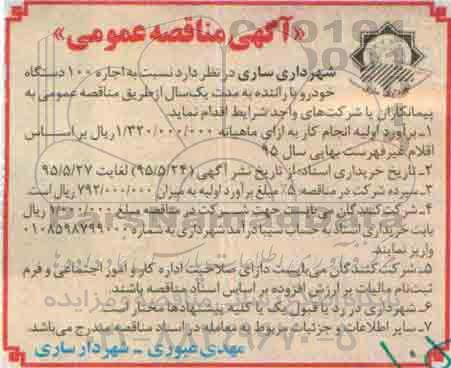 «آگهی مناقصه عمومی»
شهرداری ساری در نظر دارد نسبت به اجاره ۱۰۰ دستگاه
خودرو با راننده به مدت یک سال از طریق مناقصه عمومی به
پیمانکاران یا شرکت‌های واجد شرایط اقدام نماید.
۱ـ برآورد اولیه انجام کار به ازای ماهیانه ۱/۳۲۰/۰۰۰/۰۰۰ ریال براساس
اقلام غیرفهرست بهایی سال ۹۵
۲ـ تاریخ خریداری اسناد: از تاریخ نشر آگهی (۹۵/۵/۲۴) لغایت ۹۵/۵/۲۷
۳ـ سپرده شرکت در مناقصه: ۵٪ مبلغ برآورد اولیه به میزان ۷۹۲/۰۰۰/۰۰۰ ریال است.
۴ـ شرکت‌کنندگان می‌بایست جهت شرکت در مناقصه مبلغ ریال
بابت خریداری اسناد به حساب سیبا درآمد شهرداری به شماره ۰۱۰۸۵۹۸۷۹۹۰۰۰
واریز نمایند.
۵ـ شرکت‌کنندگان می‌بایست دارای صلاحیت اداره کار و امور اجتماعی و فرم
ثبت‌نام مالیات بر ارزش افزوده بر اساس اسناد مناقصه باشند.
۶ـ شهرداری در رد یا قبول یک یا کلیه پیشنهادها مختار است.
۷ـ سایر اطلاعات و جزئیات مربوط به معامله در اسناد مناقصه مندرج می‌باشد.
مهدی عبوری ـ شهردار ساری